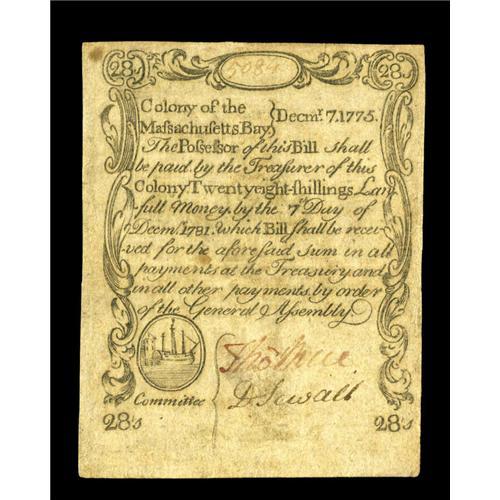 28s 5084 28s
Colony of the } Decmr. 7. 1775.
Massachusetts Bay,
The Possessor of this Bill shall
be paid by the Treasurer of this
Colony Twentyeight-shillings Law
full Money, by the 7th Day of
Decmr. 1781. Which Bill shall be recei-
ved for the aforesaid sum in all
payments at the Treasury and
in all other payments by order
of the General Assembly
D Sewall
Committee
28s 28s